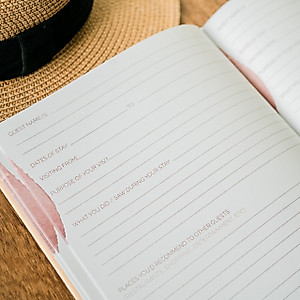 GUEST NAME/S:
DATES OF STAY: TO
VISITING FROM:
PURPOSE OF YOUR VISIT:
WHAT YOU DID / SAW DURING YOUR STAY
PLACES YOU'D RECOMMEND TO OTHER GUESTS